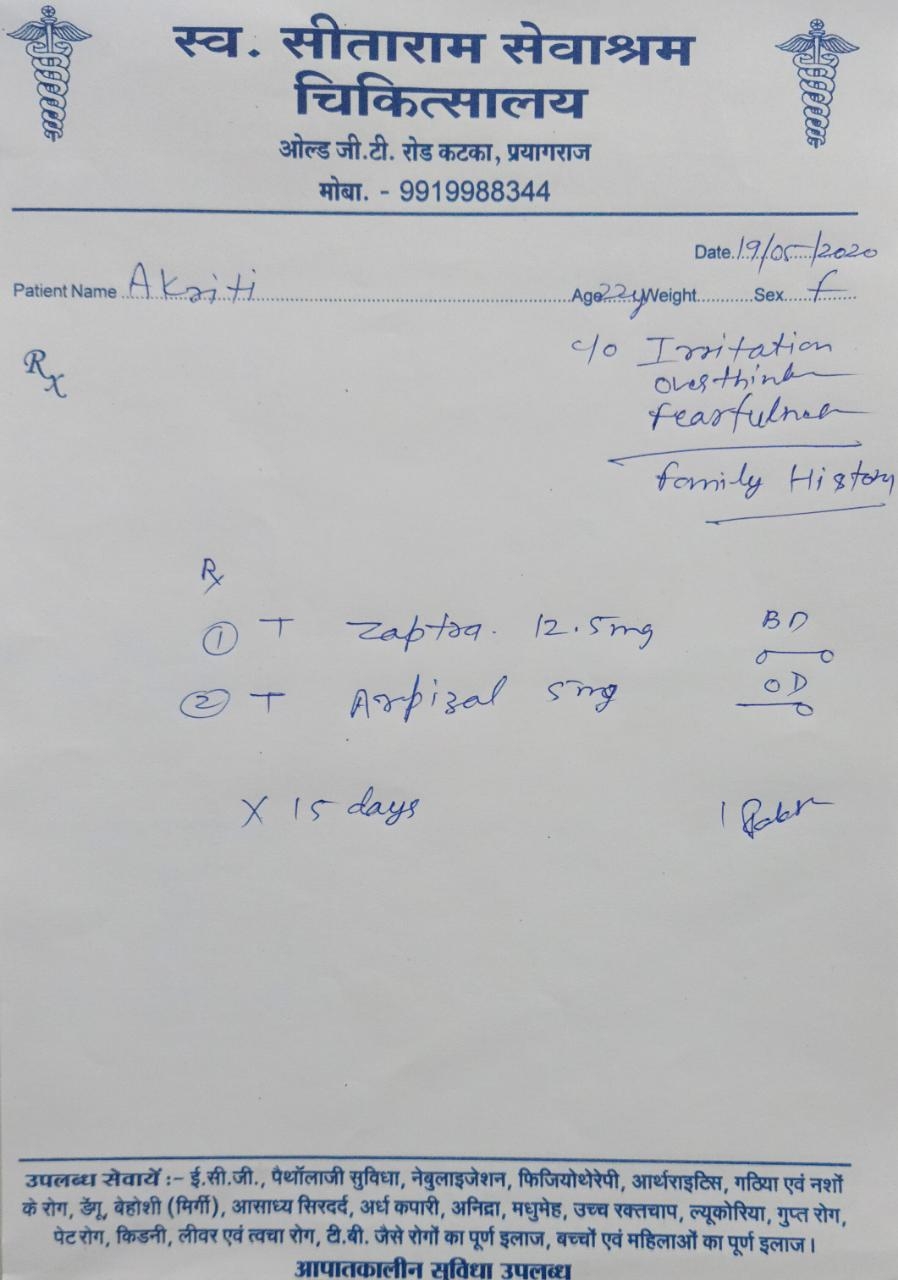 स्व. सीताराम सेवाश्रम
चिकित्सालय
ओल्ड जी.टी. रोड कटका, प्रयागराज
मोबा. - 9919988344
Date. 19/05/2020
Patient Name Akriti Age 22y Weight Sex f
Rx
c/o Irritation
overthink
fearfulness
family History
Rx
① T Zaptra. 12.5mg BD
② T Arpizal 5mg OD
X 15 days 1
उपलब्ध सेवायें :- ई.सी.जी., पैथॉलाजी सुविधा, नेबुलाइजेशन, फिजियोथेरेपी, आर्थराइटिस, गठिया एवं नशों
के रोग, डेंगू, बेहोशी (मिर्गी), आसाध्य सिरदर्द, अर्ध कपारी, अनिद्रा, मधुमेह, उच्च रक्तचाप, ल्यूकोरिया, गुप्त रोग,
पेट रोग, किडनी, लीवर एवं त्वचा रोग, टी.बी. जैसे रोगों का पूर्ण इलाज, बच्चों एवं महिलाओं का पूर्ण इलाज।
आपातकालीन सुविधा उपलब्ध